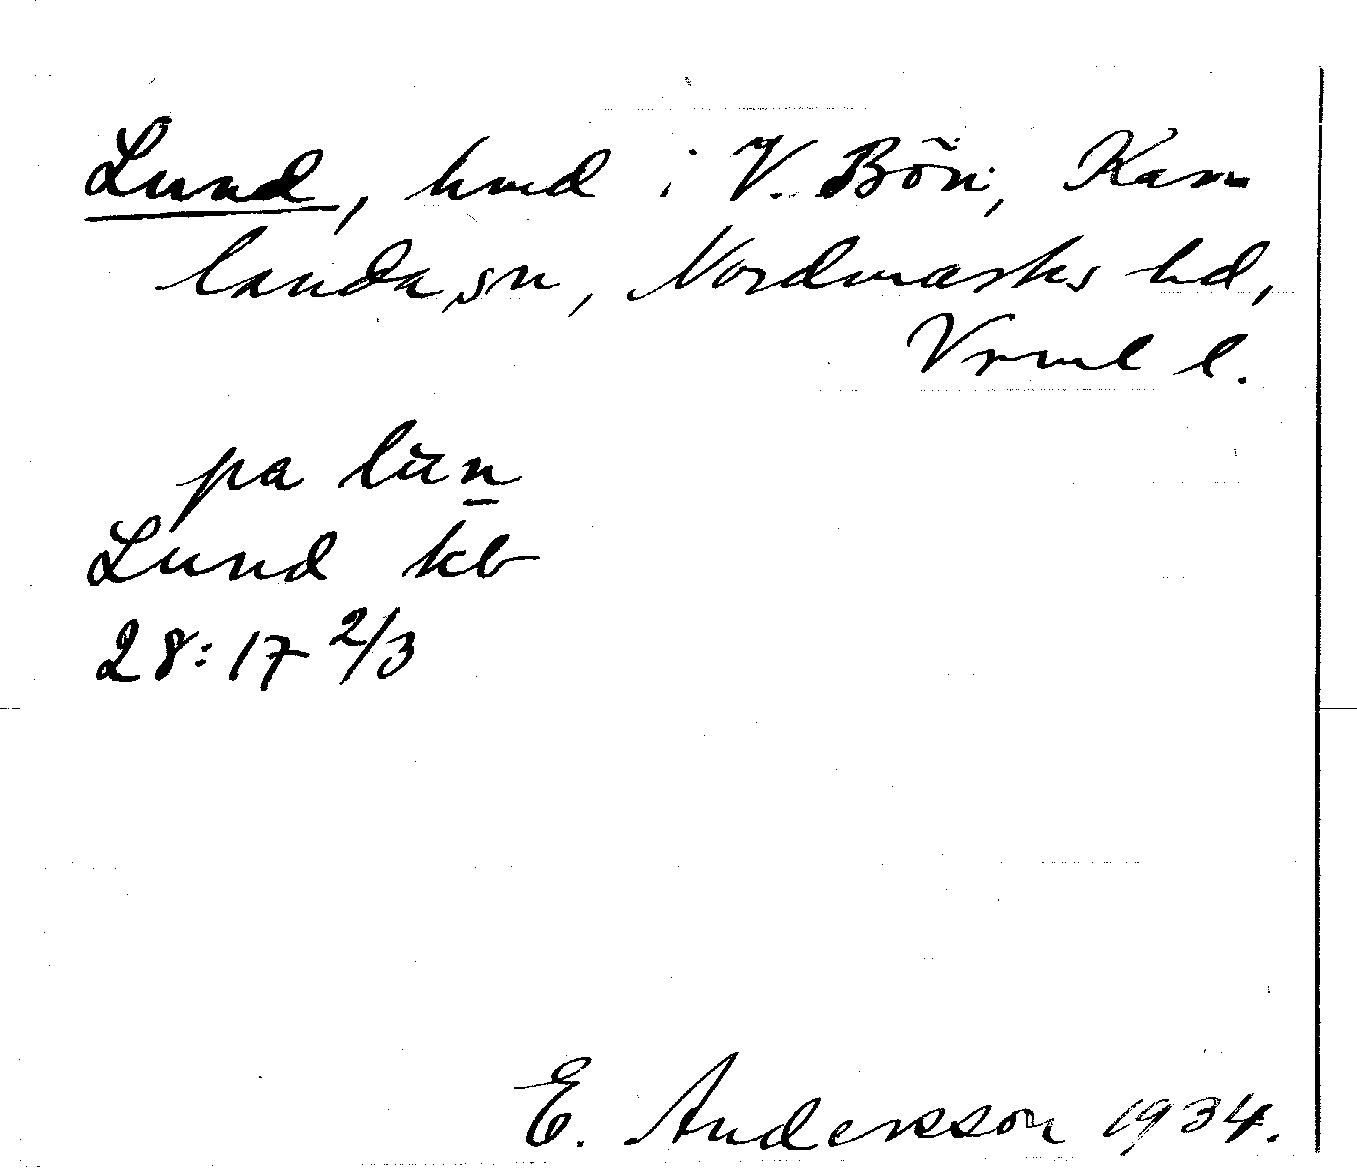 Lund, hmd i V. Bön, Karl
landa sn, Nordmarks hd,
Vrml l.
pa lun
Lund kb
28:17 2/3
E. Andersson 1934.